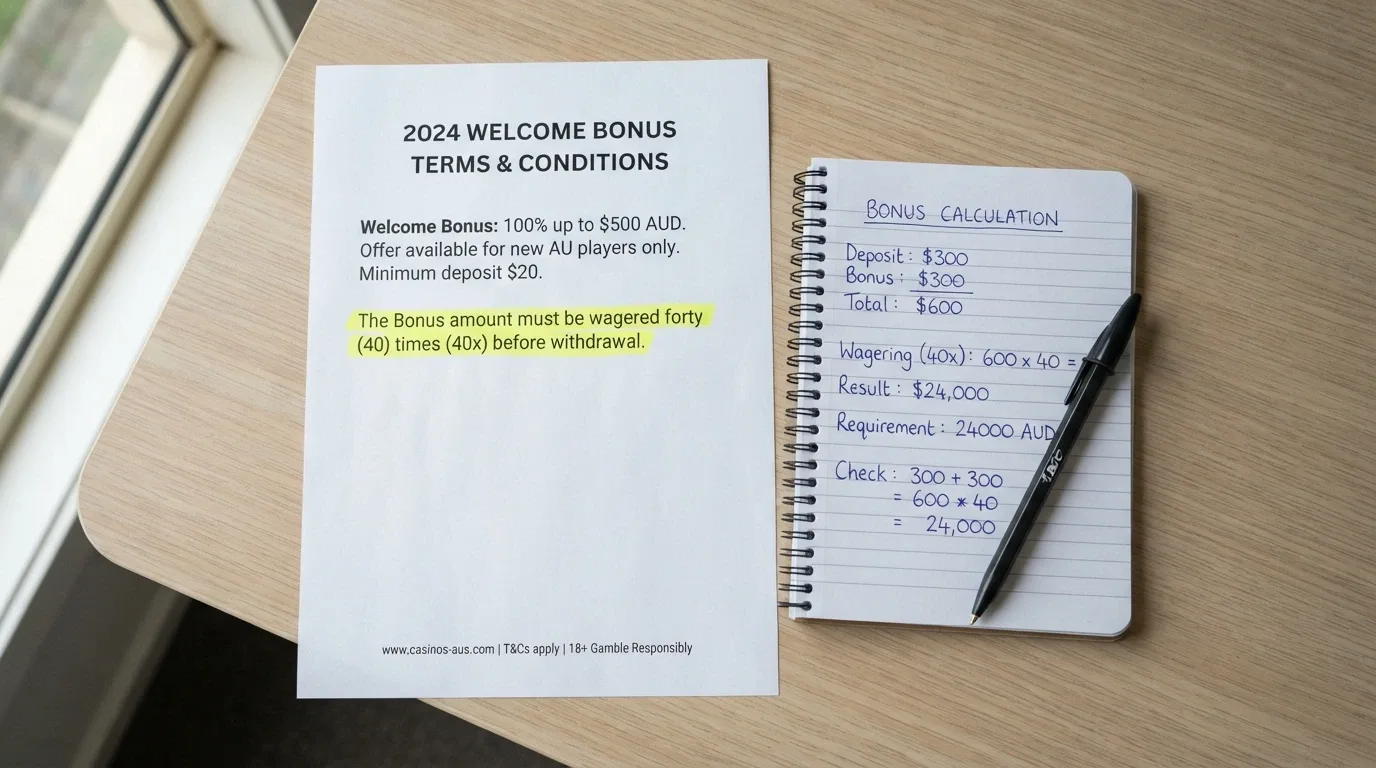 2024 WELCOME BONUS
TERMS & CONDITIONS
Welcome Bonus: 100% up to $500 AUD.
Offer available for new AU players only.
Minimum deposit $20.
The Bonus amount must be wagered forty
(40) times (40x) before withdrawal.
www.casinos-aus.com | T&Cs apply | 18+ Gamble Responsibly
BONUS CALCULATION
Deposit: $300
Bonus: $300
Total: $600
Wagering (40x): 600 x 40 =
Result: $24,000
Requirement: 24000 AUD
Check: 300 + 300
= 600 * 40
= 24,000